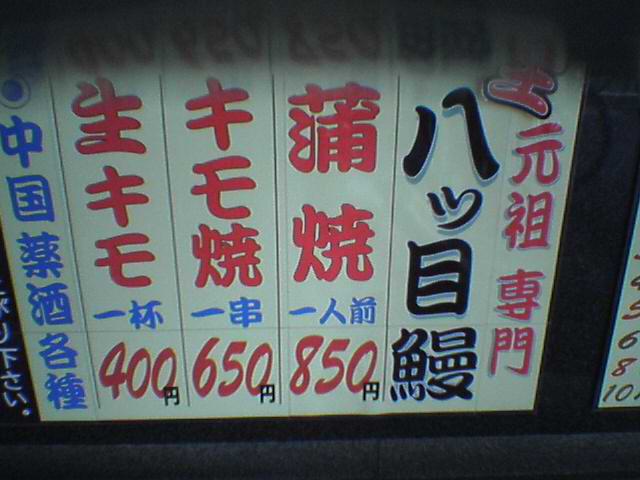 元祖 専門
八ッ目鰻
蒲焼 一人前 850円
キモ焼 一串 650円
生キモ 一杯 400円
中国薬酒各種
下さい。